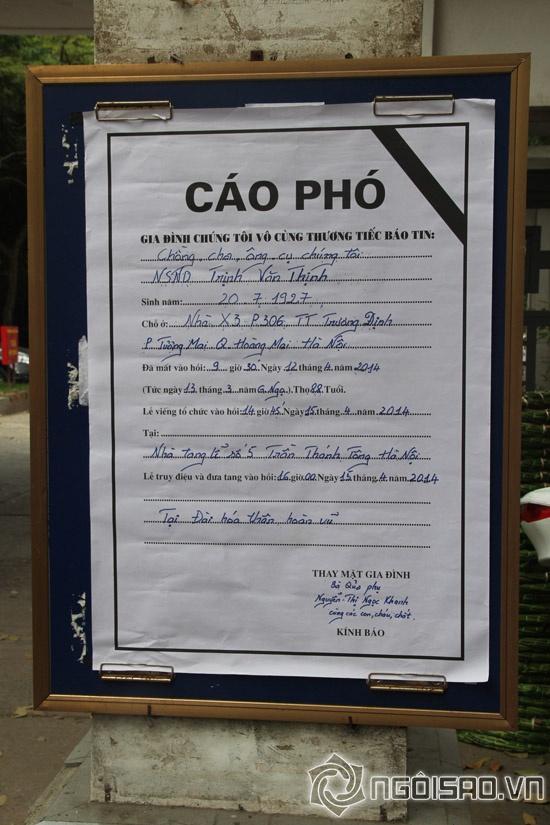 CÁO PHÓ
GIA ĐÌNH CHÚNG TÔI VÔ CÙNG THƯƠNG TIẾC BÁO TIN:
Chồng, cha, ông, cụ chúng tôi
NSND Trịnh Văn Thịnh
Sinh năm: 20.7.1927
Chỗ ở: Nhà X3 P306 TT Trương Định
P. Tương Mai Q. Hoàng Mai Hà Nội
Đã mất vào hồi: 9 giờ 30 Ngày 12 tháng 4 năm 2014
(Tức ngày 13 tháng 3 năm G.Ngọ). Thọ 88 Tuổi.
Lễ viếng tổ chức vào hồi: 14 giờ 45 Ngày 15 tháng 4 năm 2014
Tại:
Nhà tang lễ số 5 Trần Thánh Tông Hà Nội
Lễ truy điệu và đưa tang vào hồi: 16 giờ 00 Ngày 15 tháng 4 năm 2014
Tại Đài hóa thân hoàn vũ
THAY MẶT GIA ĐÌNH
Bà Quả phụ
Nguyễn Thị Ngọc Khanh
cùng các con, cháu, chắt
KÍNH BÁO
NGÔISAO.VN